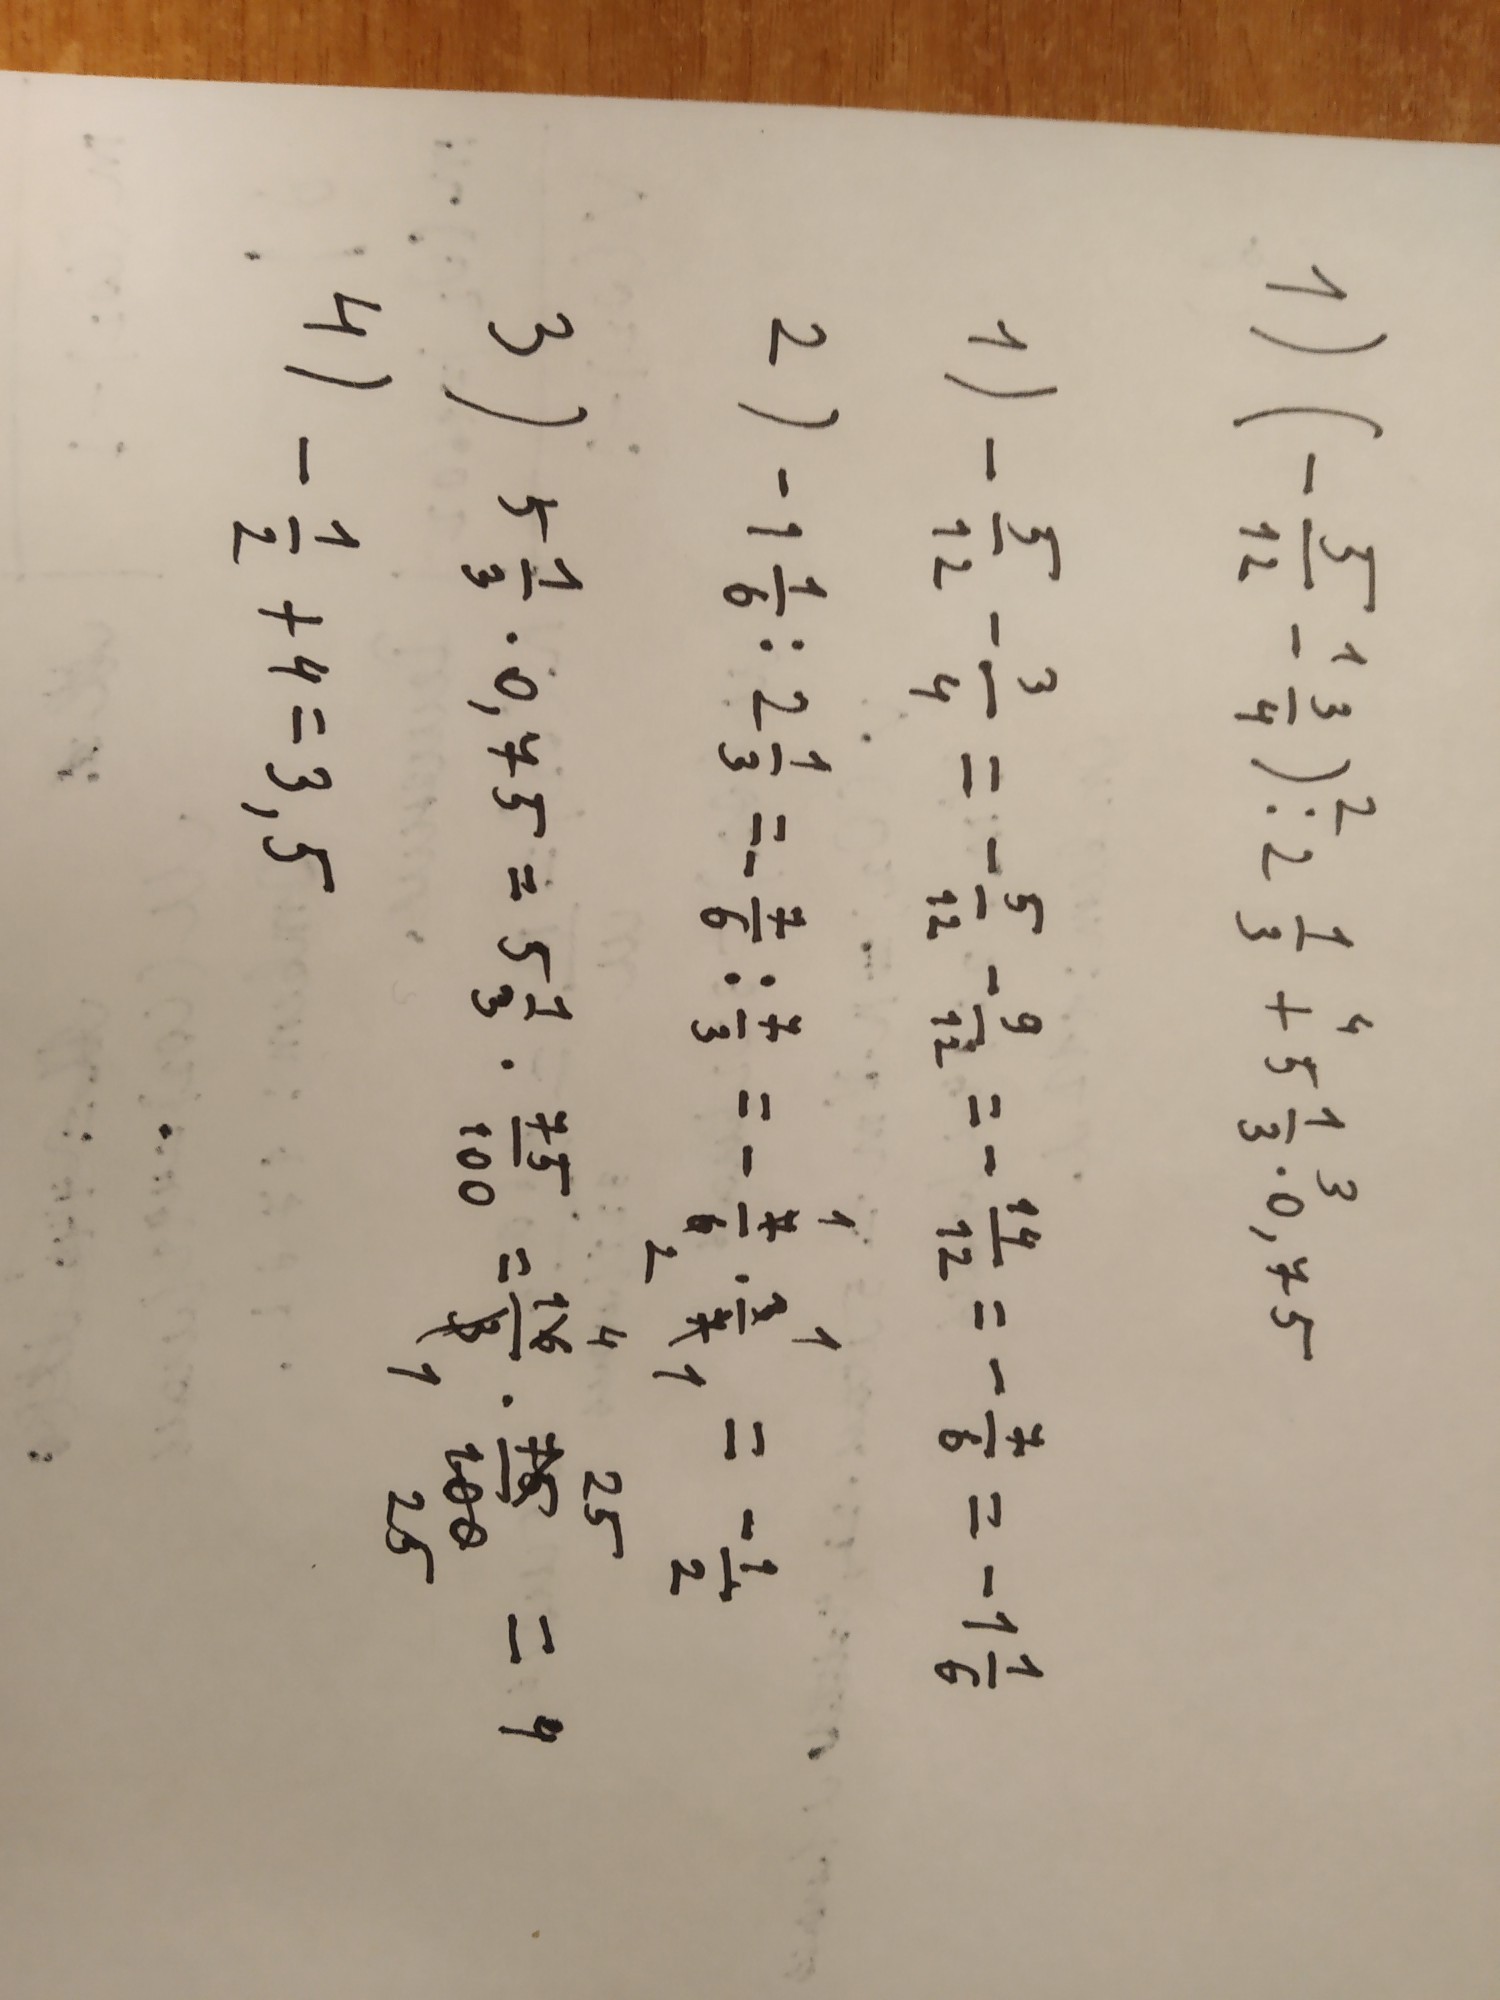 1) (-5/12 - 3/4) : 2 1/3 + 5 1/3 · 0,75
1) -5/12 - 3/4 = -5/12 - 9/12 = -14/12 = -7/6 = -1 1/6
2) -1 1/6 : 2 1/3 = -7/6 : 7/3 = -7/6 · 3/7 = -1/2
3) 5 1/3 · 0,75 = 5 1/3 · 75/100 = 16/3 · 75/100 = 4
4) -1/2 + 4 = 3,5